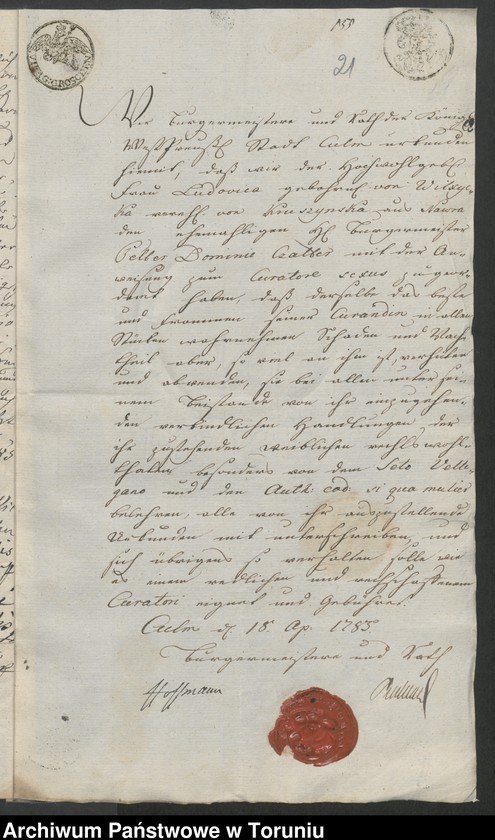 155
21
Wir Bürgermeistere und Rath der Königl
Westpreuß Stadt Culm urkunden
hiemit, daß wir der Hochwohlgeb
Frau Ludovica gebohrne von Wilxyc-
ka verehl von Kruszynska aus Nawra
den ehemahligen H Bürgermeister
Dominic mit der An-
weisung zum Curatore sexus zugeor-
dnet haben, daß derselbe das beste
und Frommen seiner Curandin in allen
Stücken wahrnehmen Schaden und Nach-
theil aber, so viel an ihm ist, verhüten
und abwenden, sie bei allen unter sei-
nem Beistande von ihr einzugehen-
den verbindlichen Handlungen der
ihr zustehenden weiblichen rechts wohl-
thaten besonders von dem Scto Velle-
jano und den Auth: cod. si qua mulier
belehren, alle von ihr auszustellende
Urkunden mit unterschreiben, und
sich übrigens so verhalten solle wie
es einem redlichen und rechtschaffenen
Curatori eignet und gebühret.
Culm d. 18. Ap. 1783.
Bürgermeistere und Rath
Hoffmann
Archiwum Państwowe w Toruniu